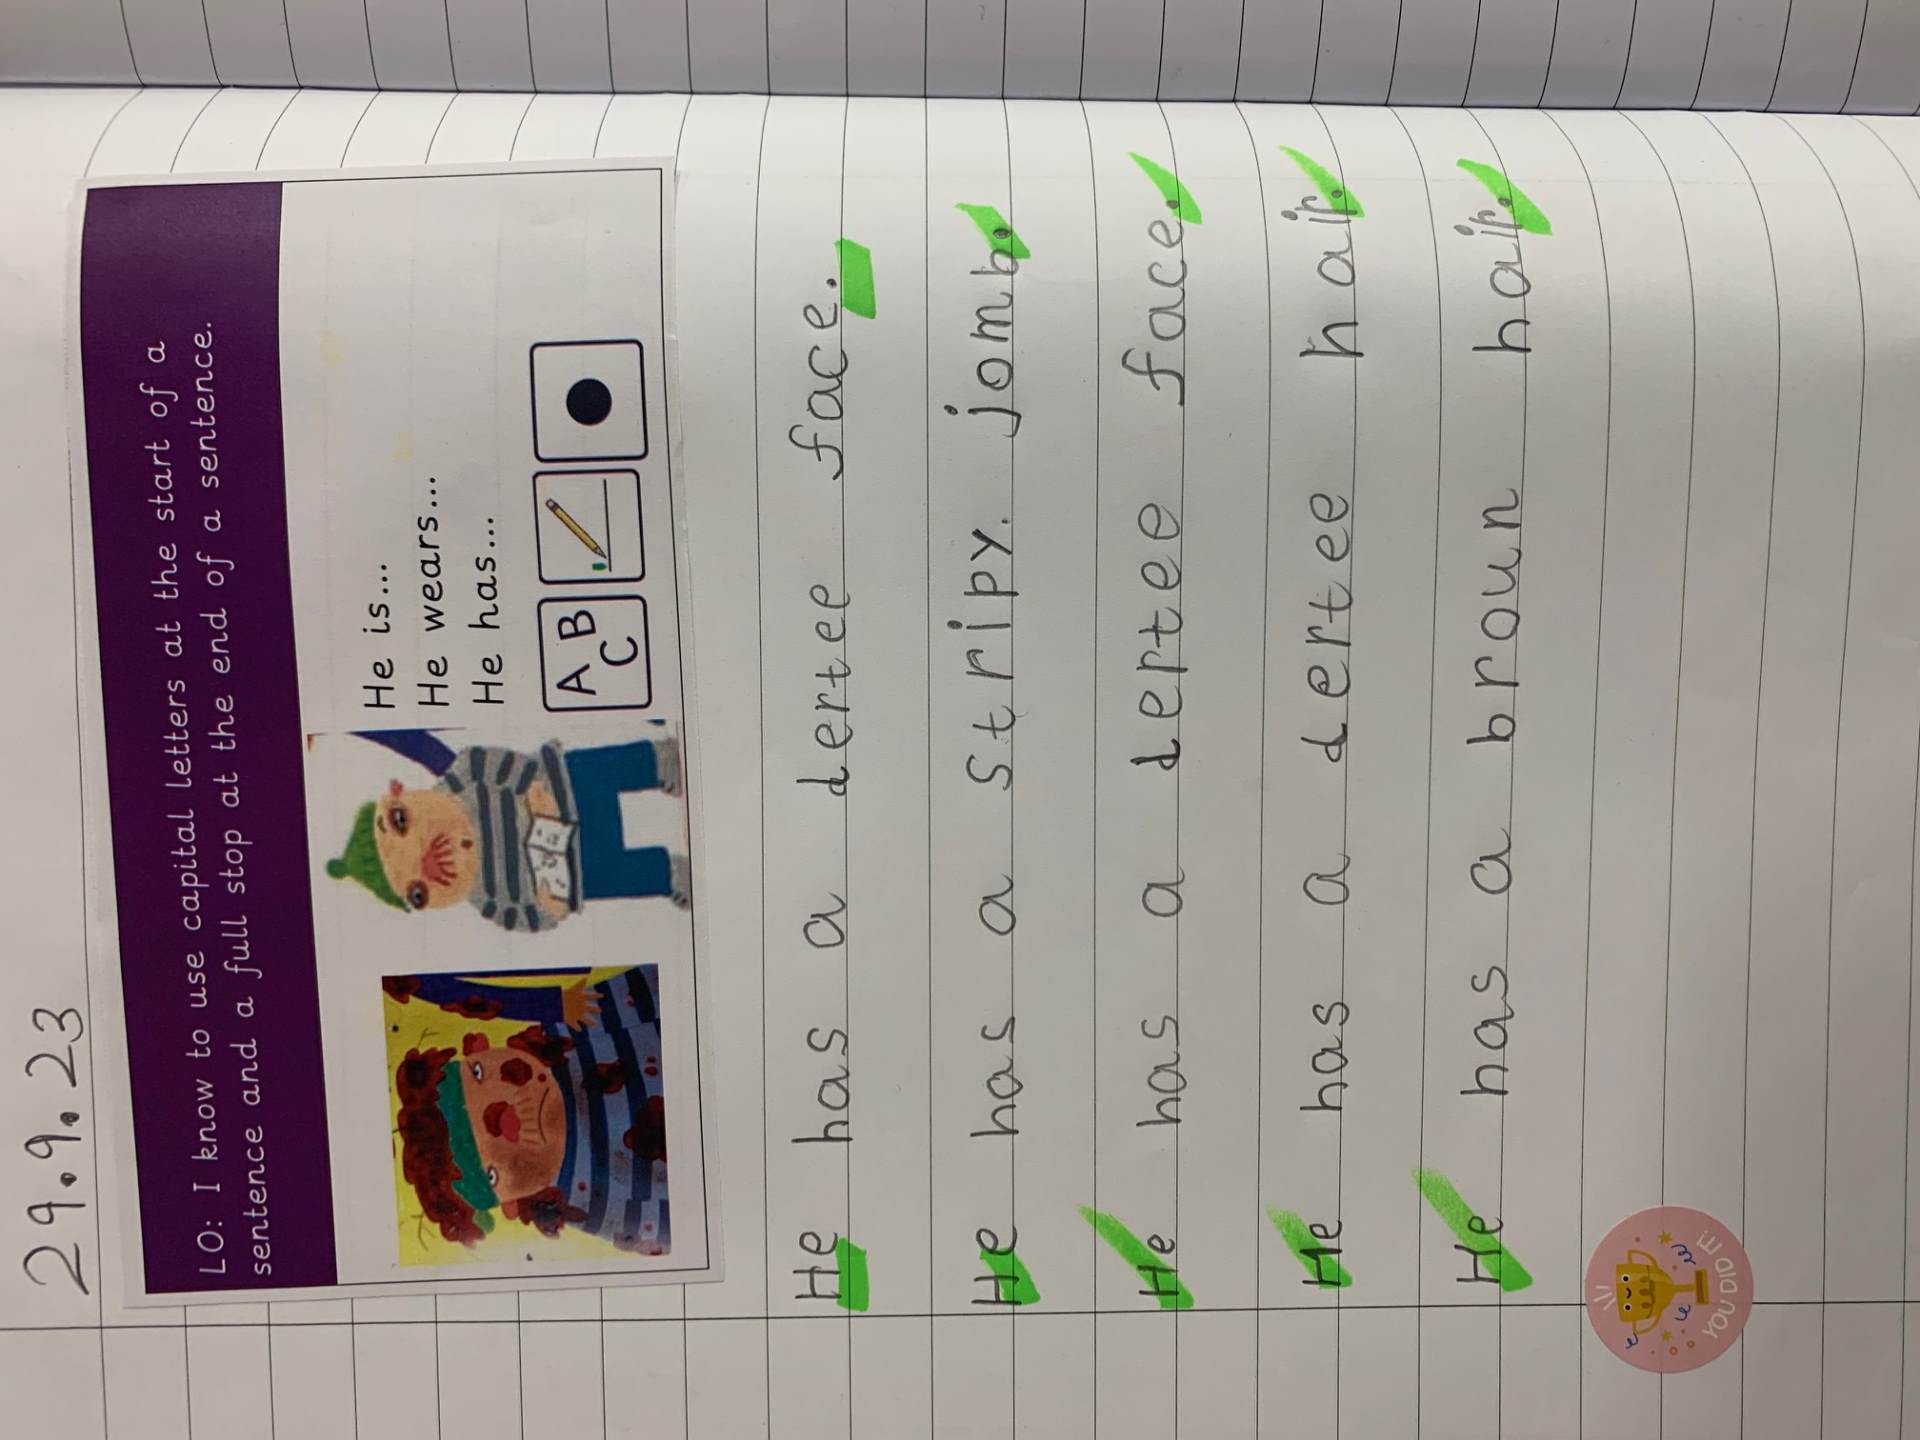 29.9.23
LO: I know to use capital letters at the start of a
sentence and a full stop at the end of a sentence.
He is...
He wears...
He has...
A B
C
He has a dertee face.
He has a stripy. jomb.
He has a dertee face.
He has a dertee hair.
He has a broun hair.
YOU DID IT